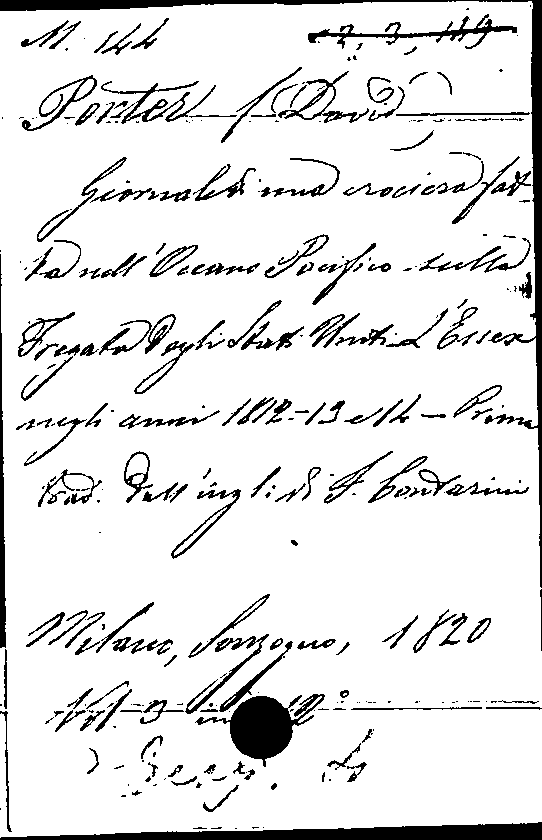 M. 144 2, 3, 119
Porter (David)
Giornale di una crociera fat-
ta nell'Oceano Pacifico sulla
Fregata degli Stati Uniti L'Essex
negli anni 1812-13 e 14 - Prima
trad. dall'ingl: di F. Contarini
Milano, Sonzogno, 1820
Vol. 3 in 12°